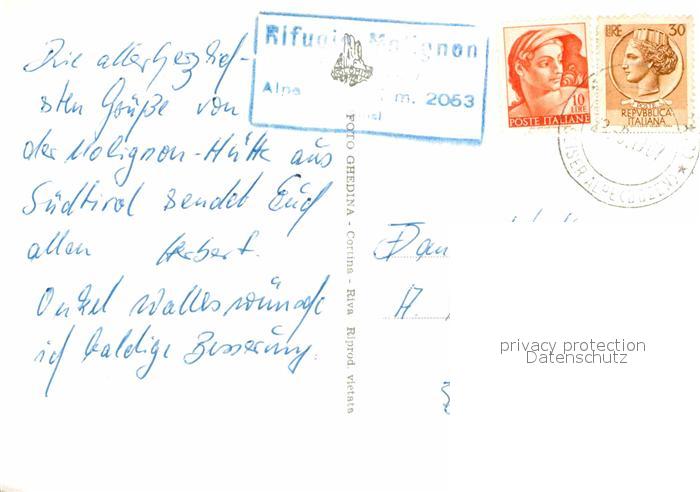 Die allerherzlich-
sten Grüße von
der Molignon-Hütte aus
Südtirol sendet Euch
allen Herbert.
Onkel Walter wünsche
ich baldige Besserung.
Rifugio Molignon
Alpe m. 2053
FOTO GHEDINA - Cortina - Riva Riprod. vietata
10
LIRE
POSTE ITALIANE
LIRE 30
POSTE
REPVBBLICA
ITALIANA
Fam
H.
privacy protection
Datenschutz